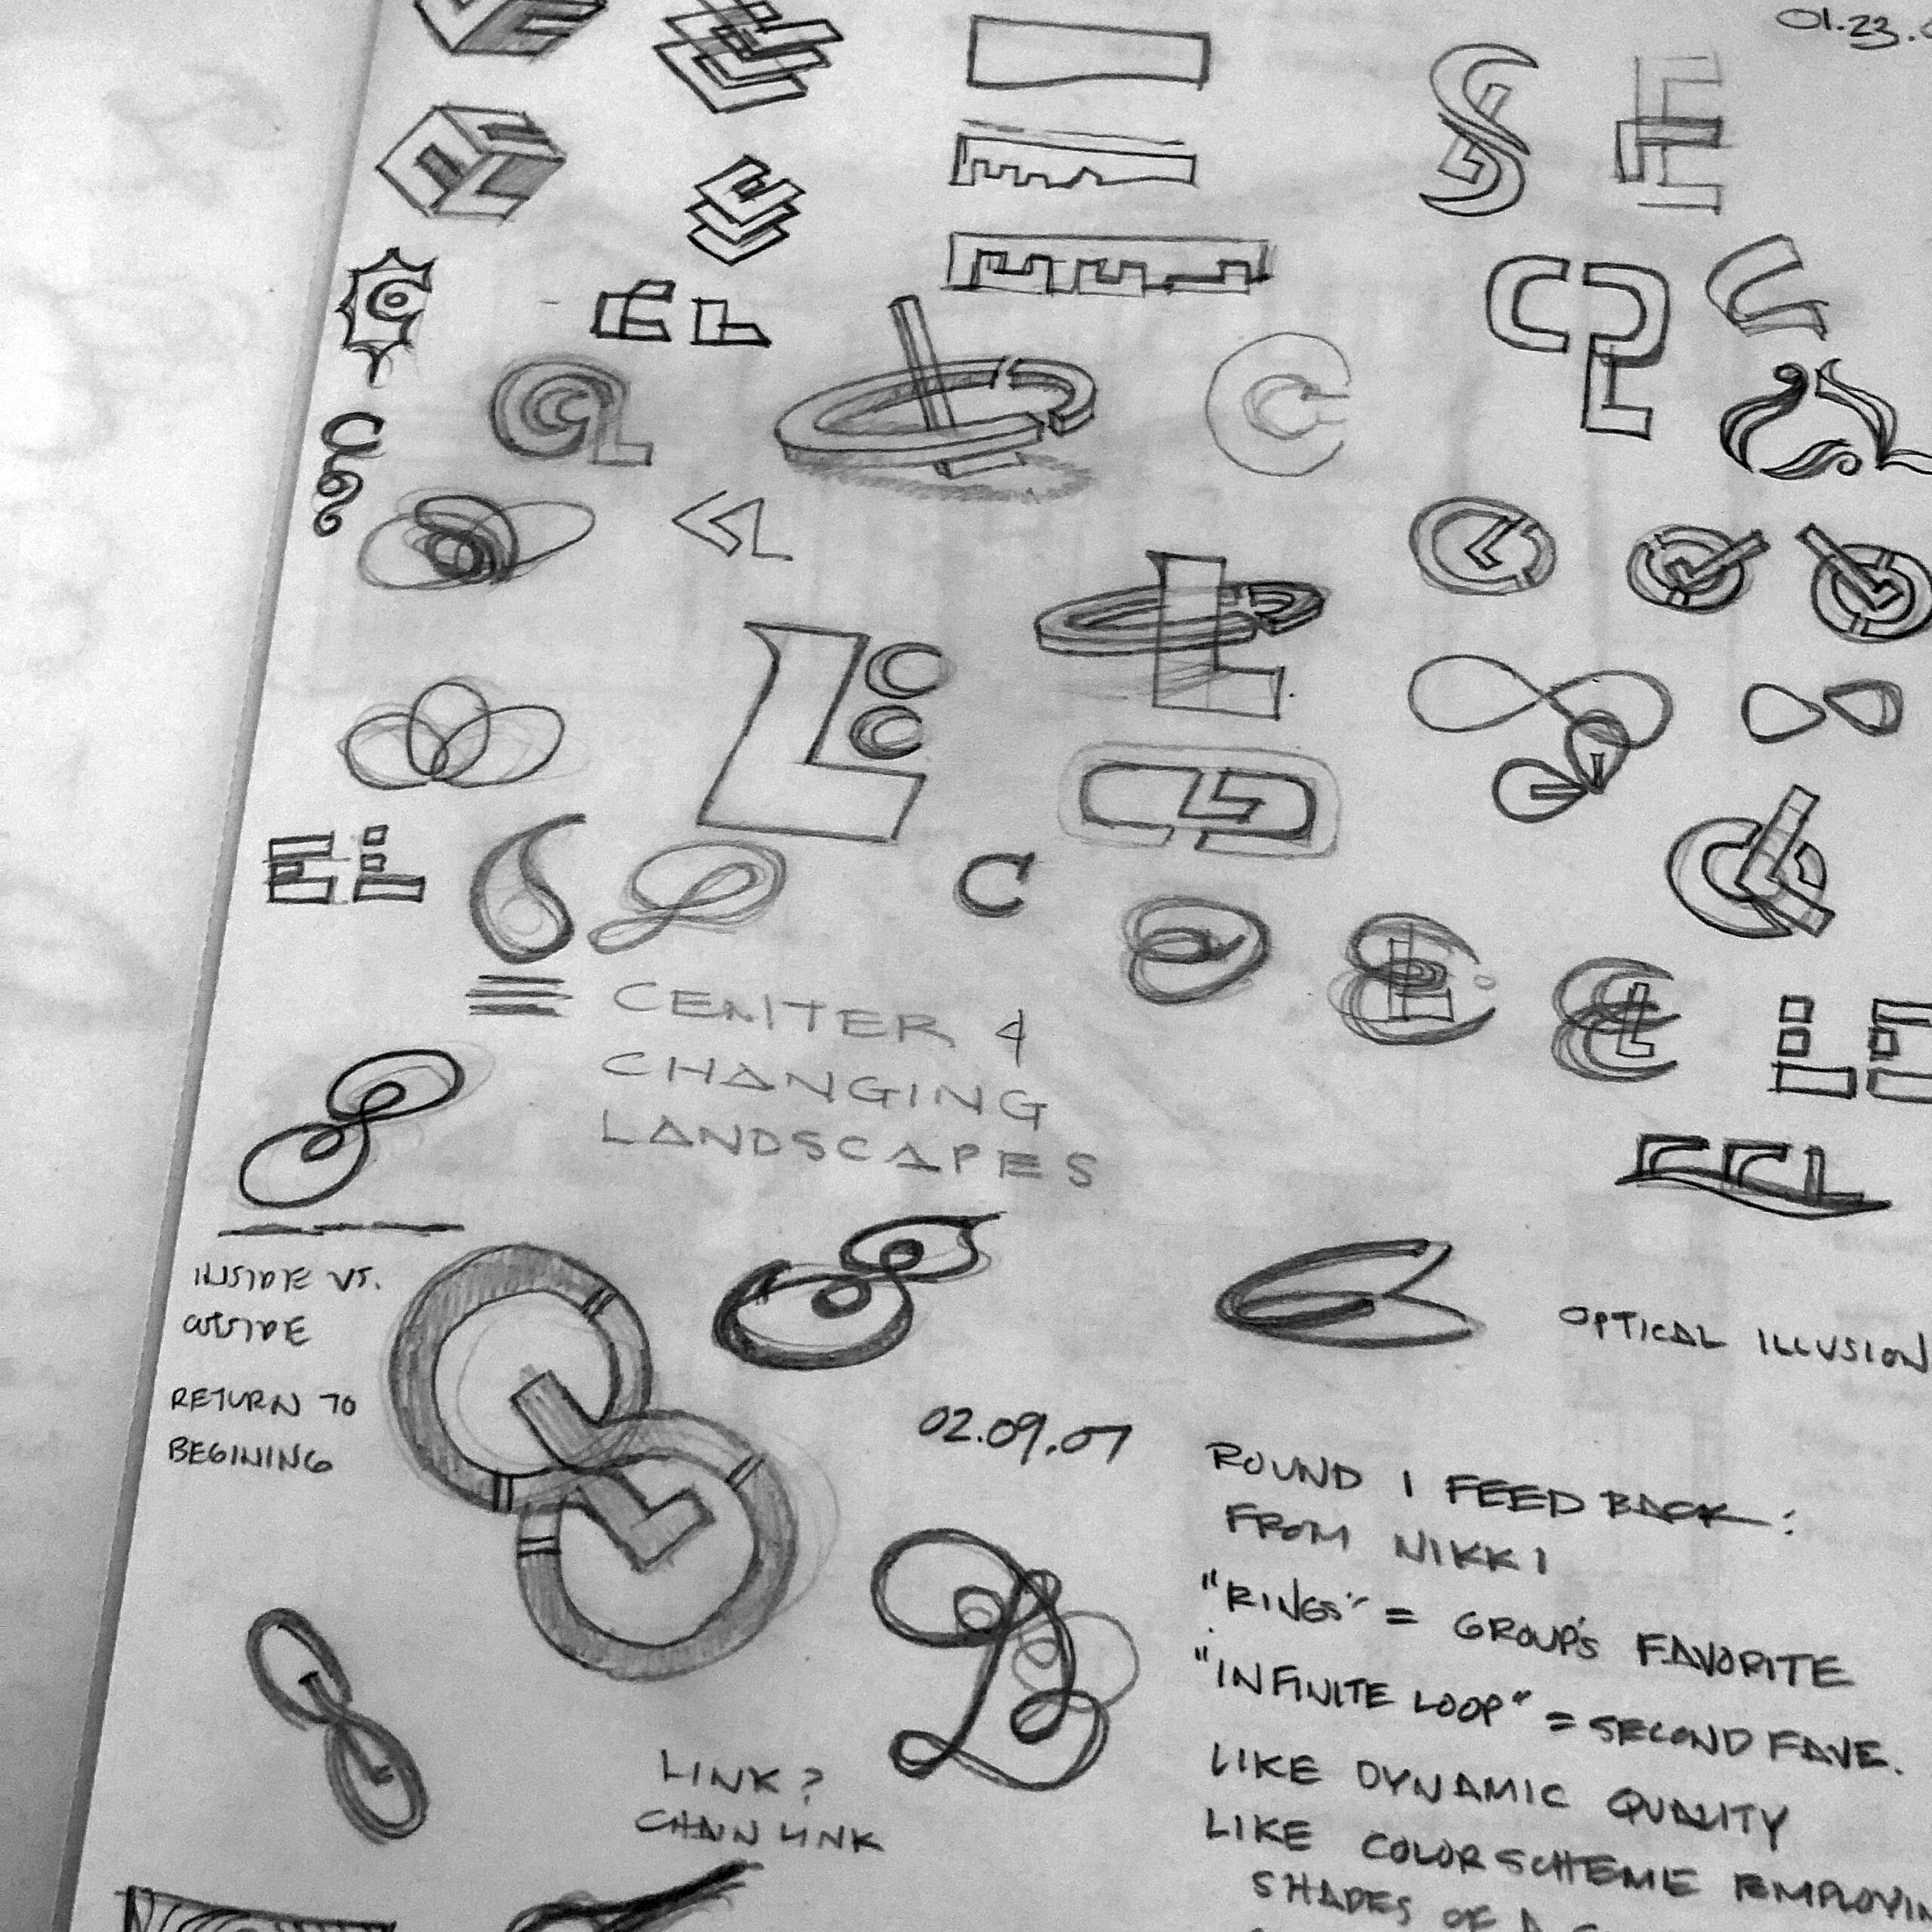 01.23.
CENTER 4
CHANGING
LANDSCAPES
INSIDE VS.
OUTSIDE
RETURN TO
BEGINING
OPTICAL ILLUSION
02.09.07
ROUND 1 FEEDBACK:
FROM NIKKI
"RINGS" = GROUP'S FAVORITE
"INFINITE LOOP" = SECOND FAVE.
LIKE DYNAMIC QUALITY
LIKE COLOR SCHEME EMPLOYIN
SHADES OF A
LINK?
CHAIN LINK